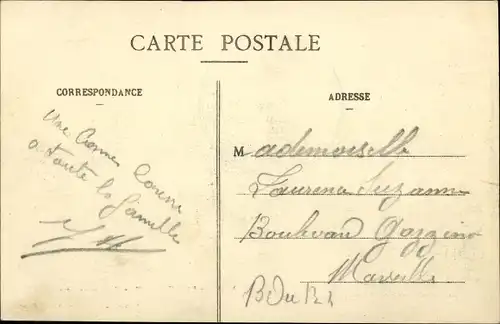 CARTE POSTALE
CORRESPONDANCE
ADRESSE
Une bonne
a toute la famille
Mademoiselle
Laurens Suzanne
Boulevard Gazzino
Marseille
B Du R